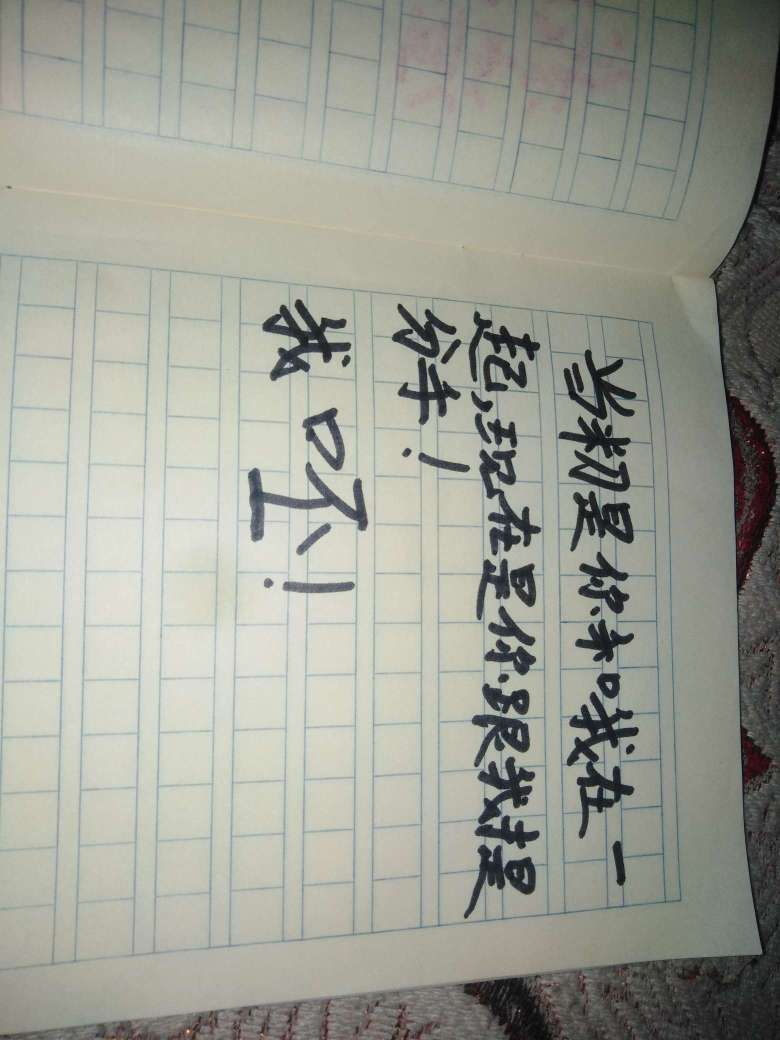 当初是你和我在一
起,现在是你跟我提
分手!
我呸!